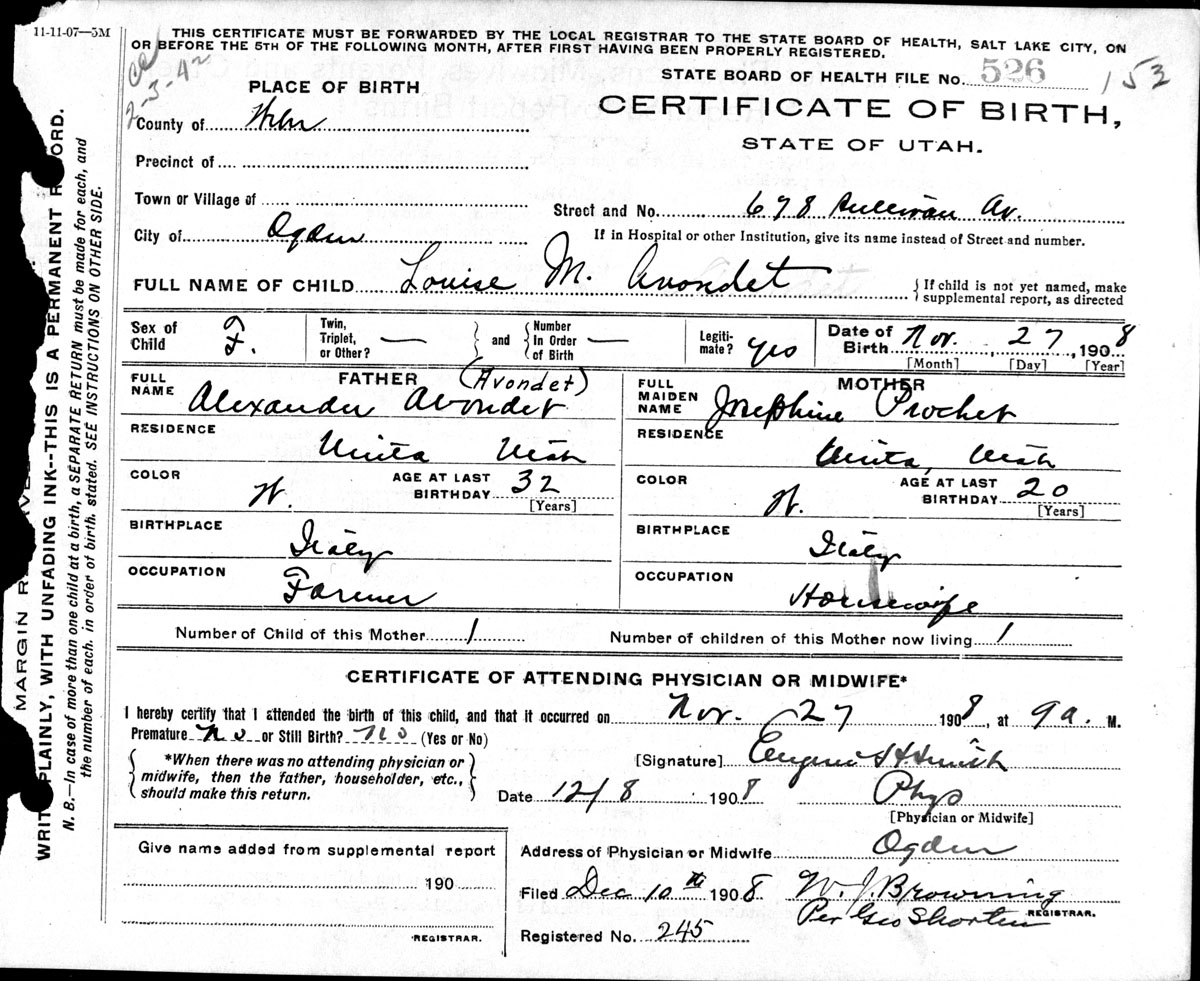 11-11-07—5M
THIS CERTIFICATE MUST BE FORWARDED BY THE LOCAL REGISTRAR TO THE STATE BOARD OF HEALTH, SALT LAKE CITY, ON
OR BEFORE THE 5TH OF THE FOLLOWING MONTH, AFTER FIRST HAVING BEEN PROPERLY REGISTERED.
STATE BOARD OF HEALTH FILE No. 526 153
2-3-42
PLACE OF BIRTH
CERTIFICATE OF BIRTH,
STATE OF UTAH.
County of Weber
Precinct of
Town or Village of
Street and No. 678 Sullivan Av.
City of Ogden
If in Hospital or other Institution, give its name instead of Street and number.
FULL NAME OF CHILD Louise M. Avondet
{ If child is not yet named, make
supplemental report, as directed
Sex of Child F.
Twin, Triplet, or Other? —
and
Number In Order of Birth —
Legiti-mate? yes
Date of Birth Nov. 27, 1908
[Month] [Day] [Year]
FATHER (Avondet)
FULL NAME Alexander Avondet
RESIDENCE Uinta Utah
COLOR W. AGE AT LAST BIRTHDAY 32
[Years]
BIRTHPLACE Italy
OCCUPATION Farmer
MOTHER
FULL MAIDEN NAME Josephine Prochet
RESIDENCE Uinta, Utah
COLOR W. AGE AT LAST BIRTHDAY 20
[Years]
BIRTHPLACE Italy
OCCUPATION Housewife
Number of Child of this Mother 1 Number of children of this Mother now living 1
CERTIFICATE OF ATTENDING PHYSICIAN OR MIDWIFE*
I hereby certify that I attended the birth of this child, and that it occurred on Nov. 27 1908, at 9 a. M.
Premature No or Still Birth? No (Yes or No)
{ *When there was no attending physician or
midwife, then the father, householder, etc.,
should make this return. }
[Signature] Eugene H Smith
Date 12/8 1908 Phys
[Physician or Midwife]
Give name added from supplemental report
190
REGISTRAR.
Address of Physician or Midwife Ogden
Filed Dec 10th 1908 W. J. Browning
Per Geo Shorten REGISTRAR.
Registered No. 245
MARGIN R
WRIT PLAINLY, WITH UNFADING INK--THIS IS A PERMANENT R ORD.
N. B.—In case of more than one child at a birth, a SEPARATE RETURN must be made for each, and
the number of each, in order of birth, stated. SEE INSTRUCTIONS ON OTHER SIDE.